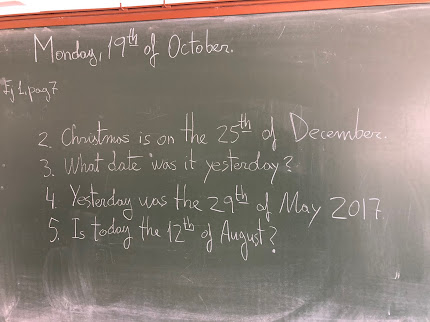 Monday, 19th of October.
Ej 1, pag 7
2. Christmas is on the 25th of December.
3. What date was it yesterday?
4. Yesterday was the 29th of May 2017.
5. Is today the 12th of August?